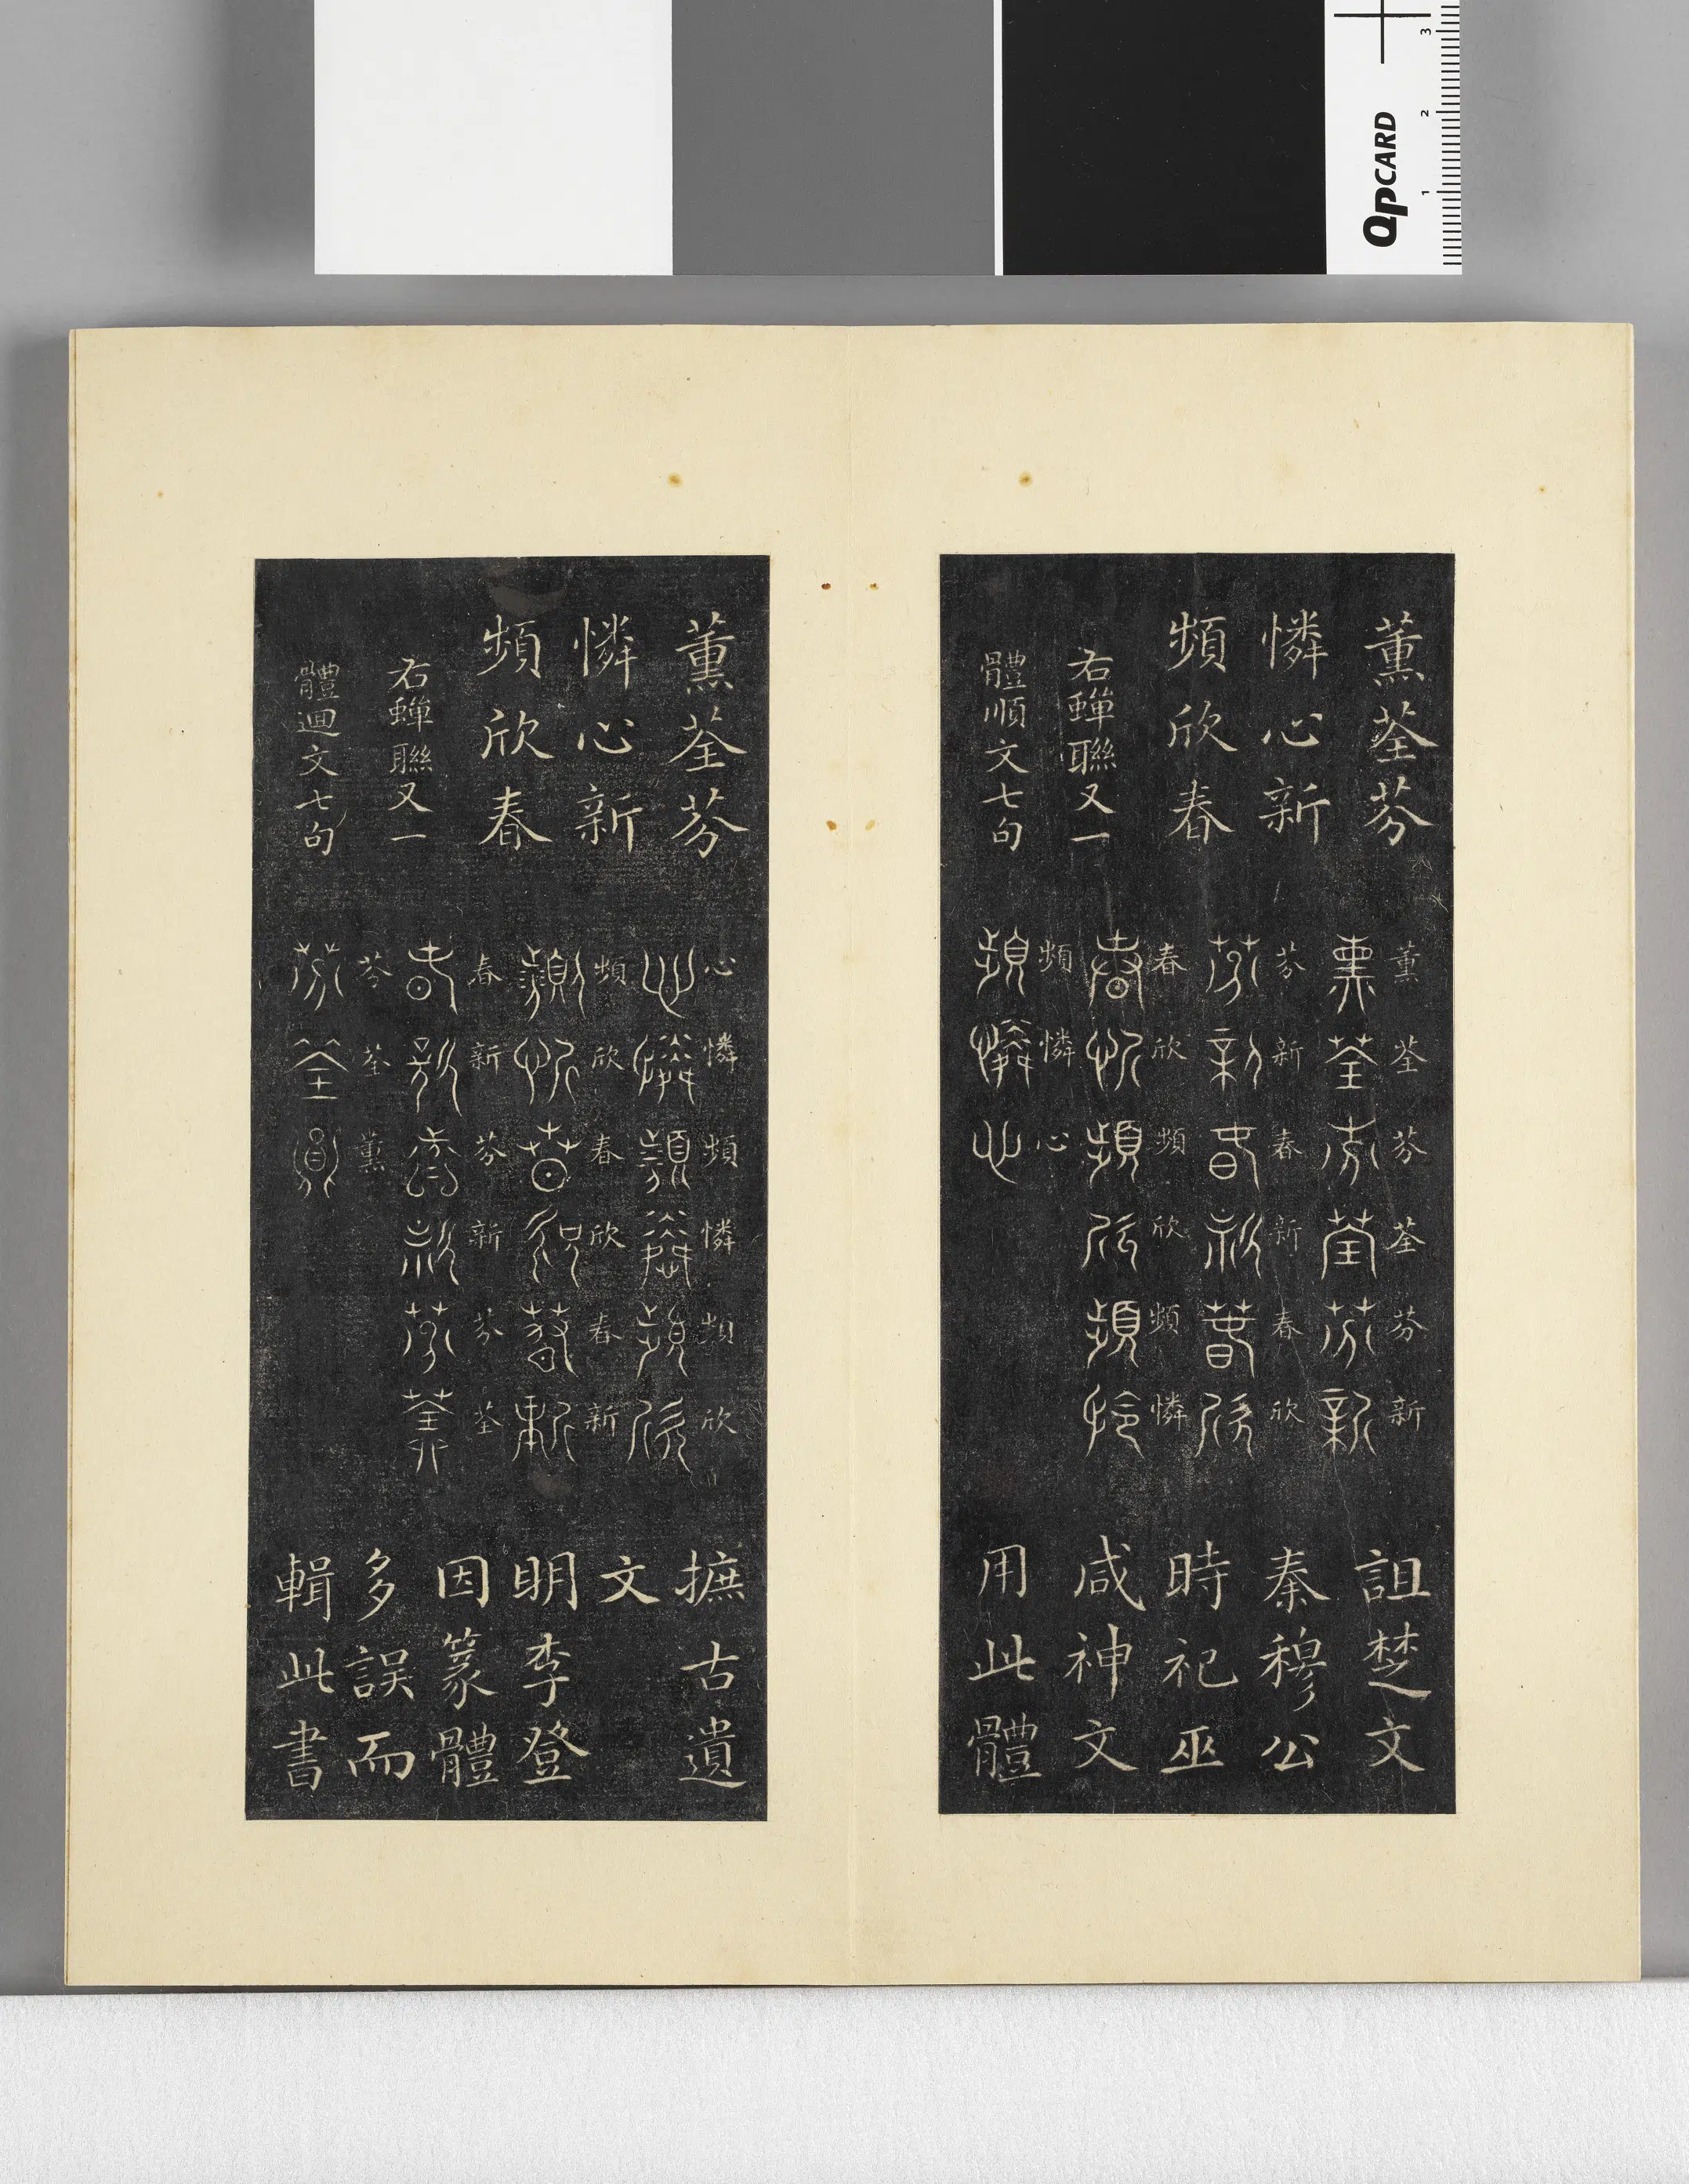 薰荃芬
憐心新
頻欣春
右蟬聯又一
體順文七句
薰荃芬荃芬新
薰荃芬荃芬新
芬新春新春欣
芬新春新春欣
春欣頻欣頻憐
春欣頻欣頻憐
頻憐心
頻憐心
詛楚文
秦穆公
時祀巫
咸神文
用此體
薰荃芬
憐心新
頻欣春
右蟬聯又一
體迴文七句
心憐頻憐頻欣
心憐頻憐頻欣
頻欣春欣春新
頻欣春欣春新
春新芬新芬荃
春新芬新芬荃
芬荃薰
芬荃薰
摭古遺
文
明李登
因篆體
多誤而
輯此書
QPCARD
1
2
3